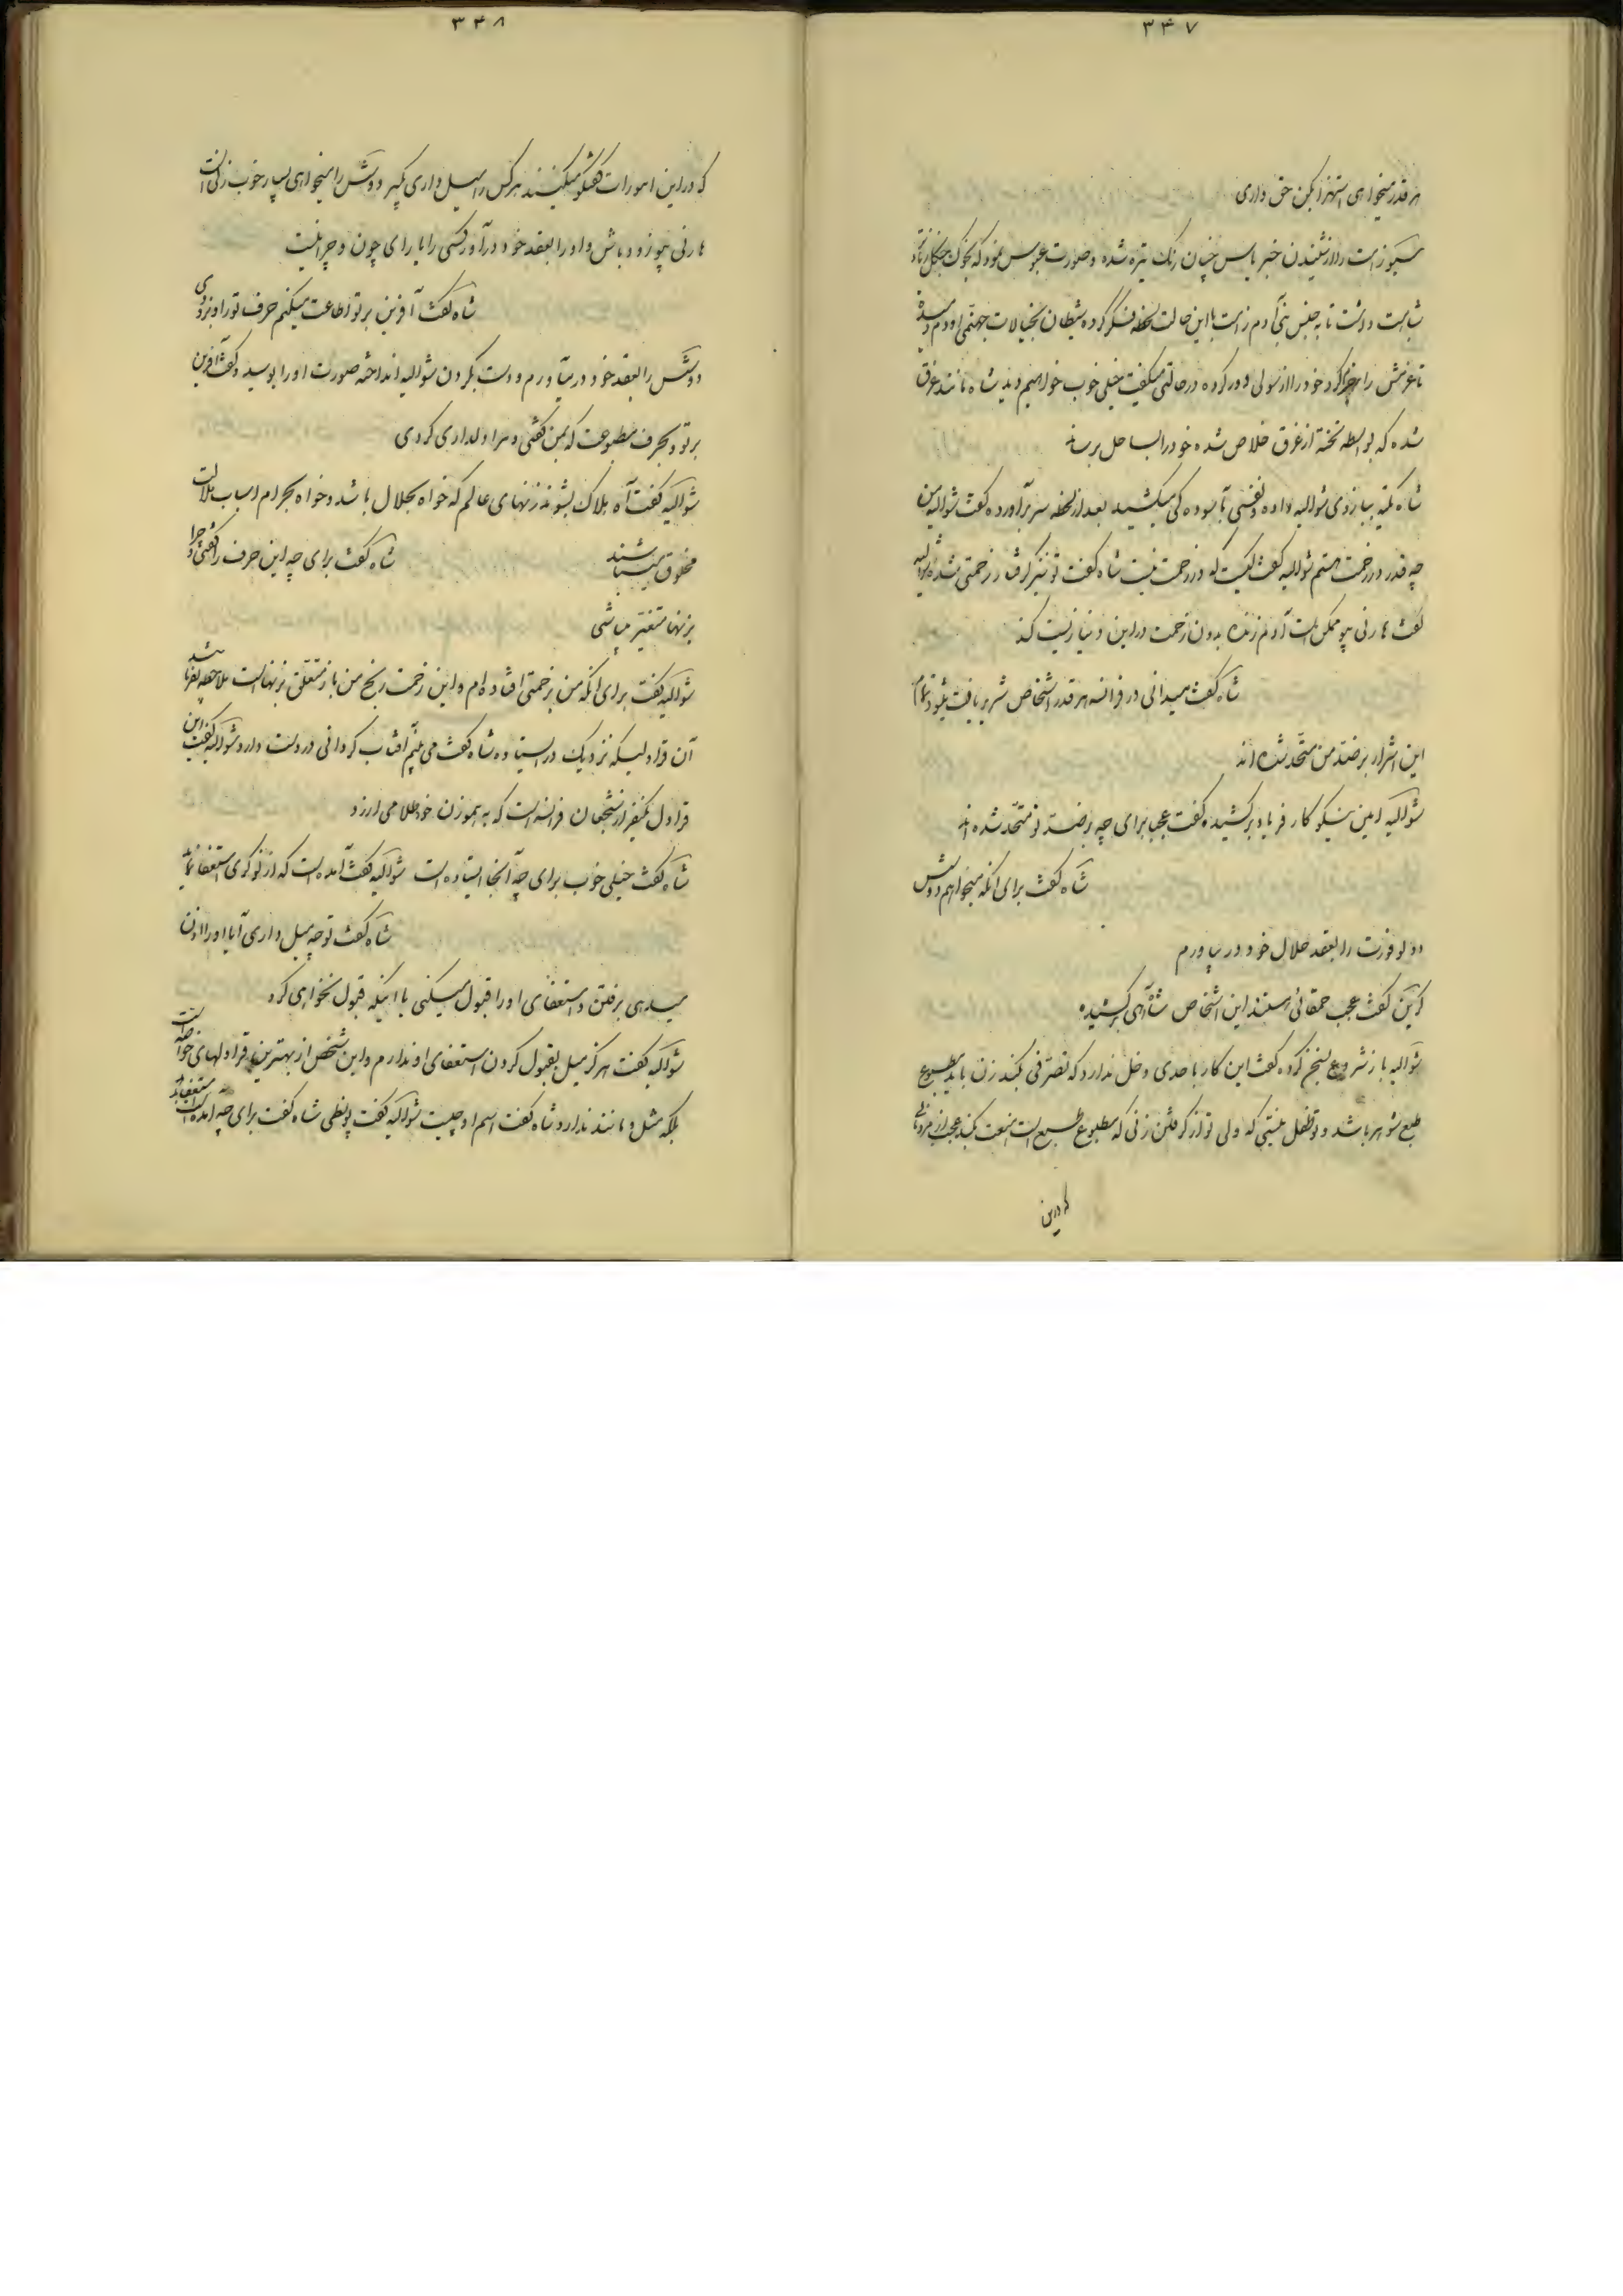 ۳۴۷
هر قدر میخواهی استهزا بکن حق داری
مسیو زامت را از شنیدن خبر یأس چنان رنگ تیره شده و صورت عبوس نمود که بخوک جنگل زیاد
شباهت داشت تا به جنس بنی آدم زامت با این حالت لحظه فکر کرده شیطان بخیالات جهنمی او دم
تا عزمش را جزم کرد خود را از سولی دور کرده در حالتی میگفت خیلی خوب خواهیم دید شاه مانند غرق
شده که بواسطه تخته از غرق خلاص شده خود را بساحل برساند
شاه تکیه ببازوی شوالیه داده و نفسی بآسوده کی میکشید بعد از لحظه سر برآورده گفت شوالیه من
چه قدر در زحمت هستم شوالیه گفت کیست که در زحمت نیست شاه گفت تو نیز گرفتار زحمتی شده شوالیه
گفت هارنی پیو ممکن است آدم زنده بدون زحمت در این دنیا زیست کند
شاه گفت میدانی در فرانسه هر قدر اشخاص شریر یافت میشود تمام
این اشرار بر ضد من متحد شده اند
شوالیه امین نیکو کار فریاد بر کشیده گفت عجب برای چه بر ضد تو متحد شده اند
شاه گفت برای آنکه میخواهم دوشس
دو بوفورت را بعقد حلال خود در بیاورم
کرین گفت عجب حمقائی هستند این اشخاص شاه آهی بر کشیده
شوالیه باز شروع بسخن کرده گفت این کار باحدی دخل ندارد که تصرفی بکند زن باید مطبوع
طبع شوهر باشد و تو طفل نیستی که ولی تو از گرفتن زنی که مطبوع طبع است منعت کند عجب از مردمانی
که در این
۳۴۸
که در این امورات گفتگو میکنند هر کس را میل داری بگیر دوشس را میخواهی بسیار خوب زنی است
هارنی پیو زود باش و او را بعقد خود درآور کسی را یارای چون و چرا نیست
شاه گفت آفرین بر تو اطاعت میکنم حرف تو را و بزودی
دوشس را بعقد خود در میآورم و دست بگردن شوالیه انداخته صورت او را بوسید و گفت آفرین
بر تو و بحرف مطبوعت که بمن گفتی و مرا دلداری کردی
شوالیه گفت آه هلاک بشوند زنهای عالم که خواه بحلال باشد و خواه بحرام اسباب هلاکت
مخلوق میباشند
شاه گفت برای چه این حرف را گفتی و چرا
بزنها متغیر میباشی
شوالیه گفت برای آنکه من بزحمتی افتاده ام و این زحمت و رنج من باز متعلق بزنهاست ملاحظه بفرمائید
آن قراولیکه نزدیک در ایستاده شاه گفت می بینم آفتاب گردانی در دست دارد شوالیه گفت این
قراول یکنفر از شجعان فرانسه است که به هموزن خود طلا می ارزد
شاه گفت خیلی خوب برای چه آنجا ایستاده است شوالیه گفت آمده است که از نوکری استعفا نماید
شاه گفت تو چه میل داری آیا او را اذن
میدهی برفتن و استعفای او را قبول میکنی یا اینکه قبول نخواهی کرد
شوالیه گفت هرگز میل بقبول کردن استعفای او ندارم و این شخص از بهترین قراولهای خواصه است
بلکه مثل و مانند ندارد شاه گفت اسم او چیست شوالیه گفت پونطی شاه گفت برای چه آمده است استعفا بکند